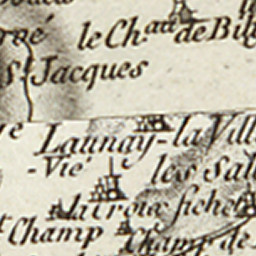 le Ch.au de Bil
St Jacques
Launay-la Vill
-Vié
les Sal
la croix fichet
Champ
Champ de